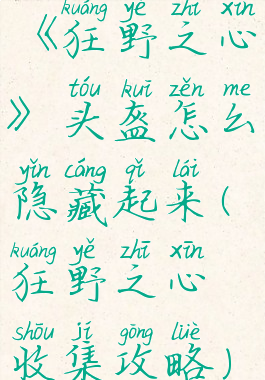 kuáng yě zhī xīn
《狂野之心
tóu kuī zěn me
》头盔怎么
yǐn cáng qǐ lái
隐藏起来(
kuáng yě zhī xīn
狂野之心
shōu jí gōng lüè
收集攻略)